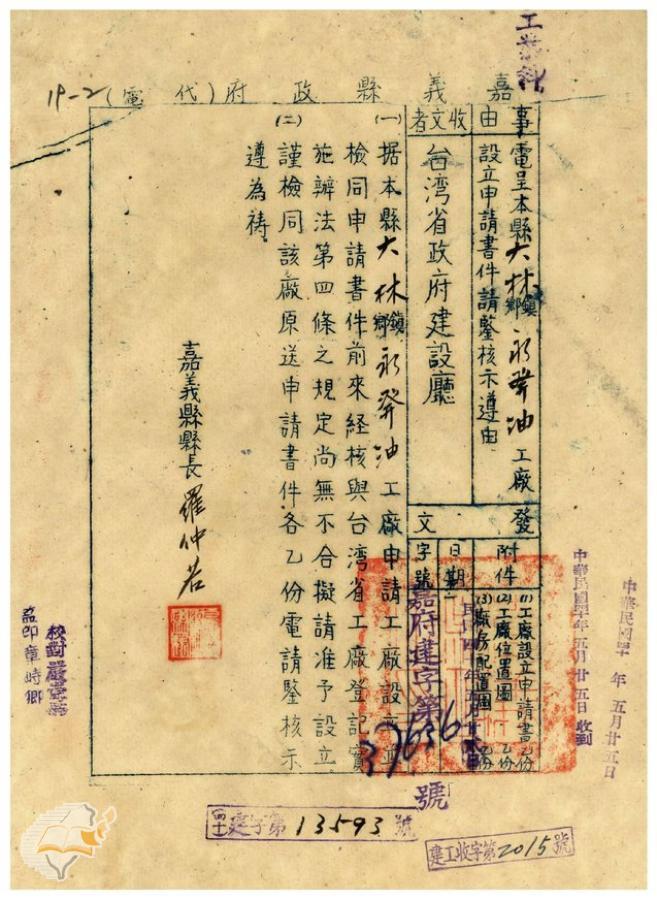 工業科
嘉義縣政府(代電)
19-2
事由
電呈本縣大林鎮鄉永發油工廠
設立申請書件請鑒核示遵由
收文者
台湾省政府建設廳
發文
附件
(1)工廠設立申請書乙份
(2)工廠位置圖乙份
(3)廠房配置圖乙份
日期
字號
嘉府建字第
37636
號
(一)据本縣大林鎮鄉永發油工廠申請工廠設立並
檢同申請書件前來経核與台湾省工廠登記實
施辦法第四條之規定尚無不合擬請准予設立
(二)謹檢同該廠原送申請書件各乙份電請鑒核示
遵為祷
嘉義縣縣長羅仲若
中華民國 年五月廿五日
中華民國 年五月廿五日收到
校對
盖印章時卿
四十建字第13593號
建工收字第2015號